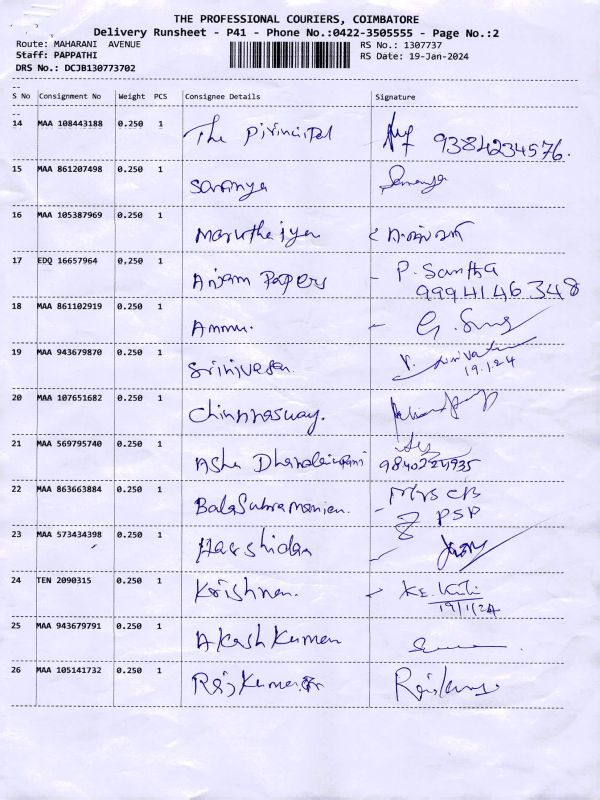 THE PROFESSIONAL COURIERS, COIMBATORE
Delivery Runsheet - P41 - Phone No.:0422-3505555 - Page No.:2
Route: MAHARANI AVENUE
RS No.: 1307737
Staff: PAPPATHI
RS Date: 19-Jan-2024
DRS No.: DCJB130773702
S No Consignment No Weight PCS Consignee Details Signature
14 MAA 108443188 0.250 1 The Pirincipel 9384234576.
15 MAA 861207498 0.250 1 Saranya
16 MAA 105387969 0.250 1 Maruthaiyan
17 EDQ 16657964 0.250 1 Anjam Papers - P. Santha
9994146348
18 MAA 861102919 0.250 1 Ammu.
19 MAA 943679870 0.250 1 Srinivasan
19.1.24
20 MAA 107651682 0.250 1 Chinnasway.
21 MAA 569795740 0.250 1 Asha
9840224935
22 MAA 863663884 0.250 1 BalaSubramanian.
PSP
23 MAA 573434398 0.250 1
24 TEN 2090315 0.250 1 Krishnan.
19/1/24
25 MAA 943679791 0.250 1 Akash Kumar
26 MAA 105141732 0.250 1 Rajkumar